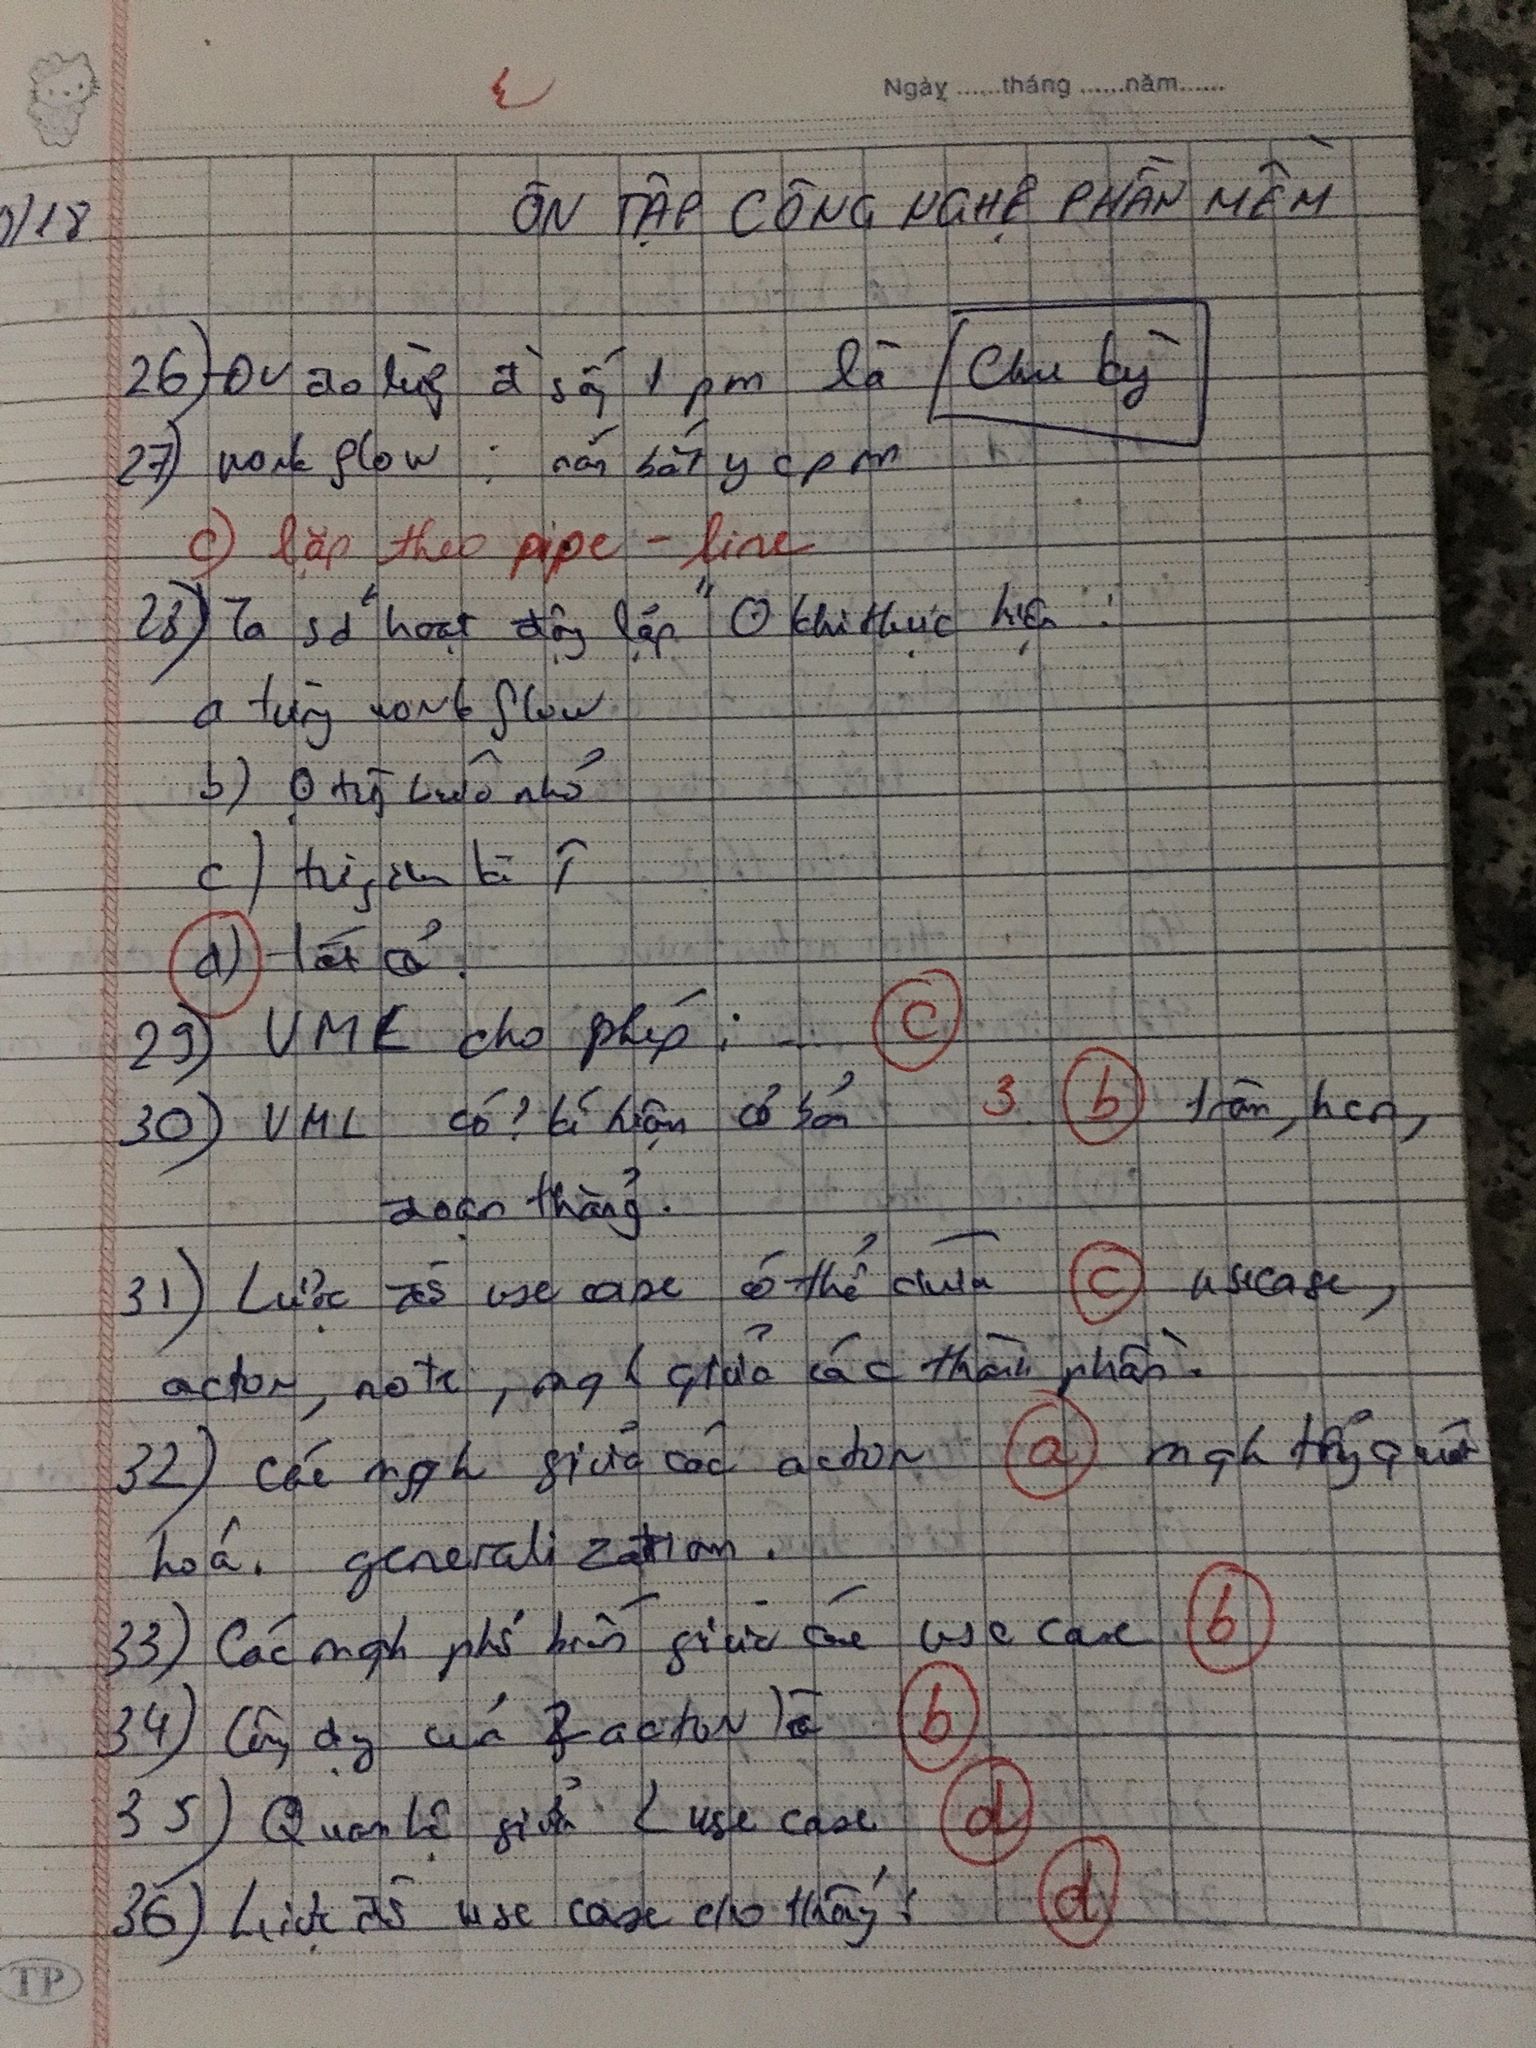 Ngày ......tháng ......năm......
/18
ÔN TẬP CÔNG NGHỆ PHẦN MỀM
26) ĐV đo 1 pm là Chu kỳ
27) workflow : nắm bắt ycpm
c) lặp theo pipe - line
28) Ta sd "hoạt động lặp" khi thực hiện :
a từng workflow
b)
c)
d) tất cả.
29) UML cho phép : ... c
30) UML có ? kí hiệu cơ bản 3 b tròn, hcn,
đoạn thẳng.
31) Lược đồ use case có thể chứa c usecase,
actor, note, mqh giữa các thành phần.
32) Các mqh giữa các actor a mqh tổng quát
hoá. generalization.
33) Các mqh phổ biến giữa các use case b
34) actor là b
35) Quan hệ giữa 2 use case d
36) Lược đồ use case cho thấy : d
TP